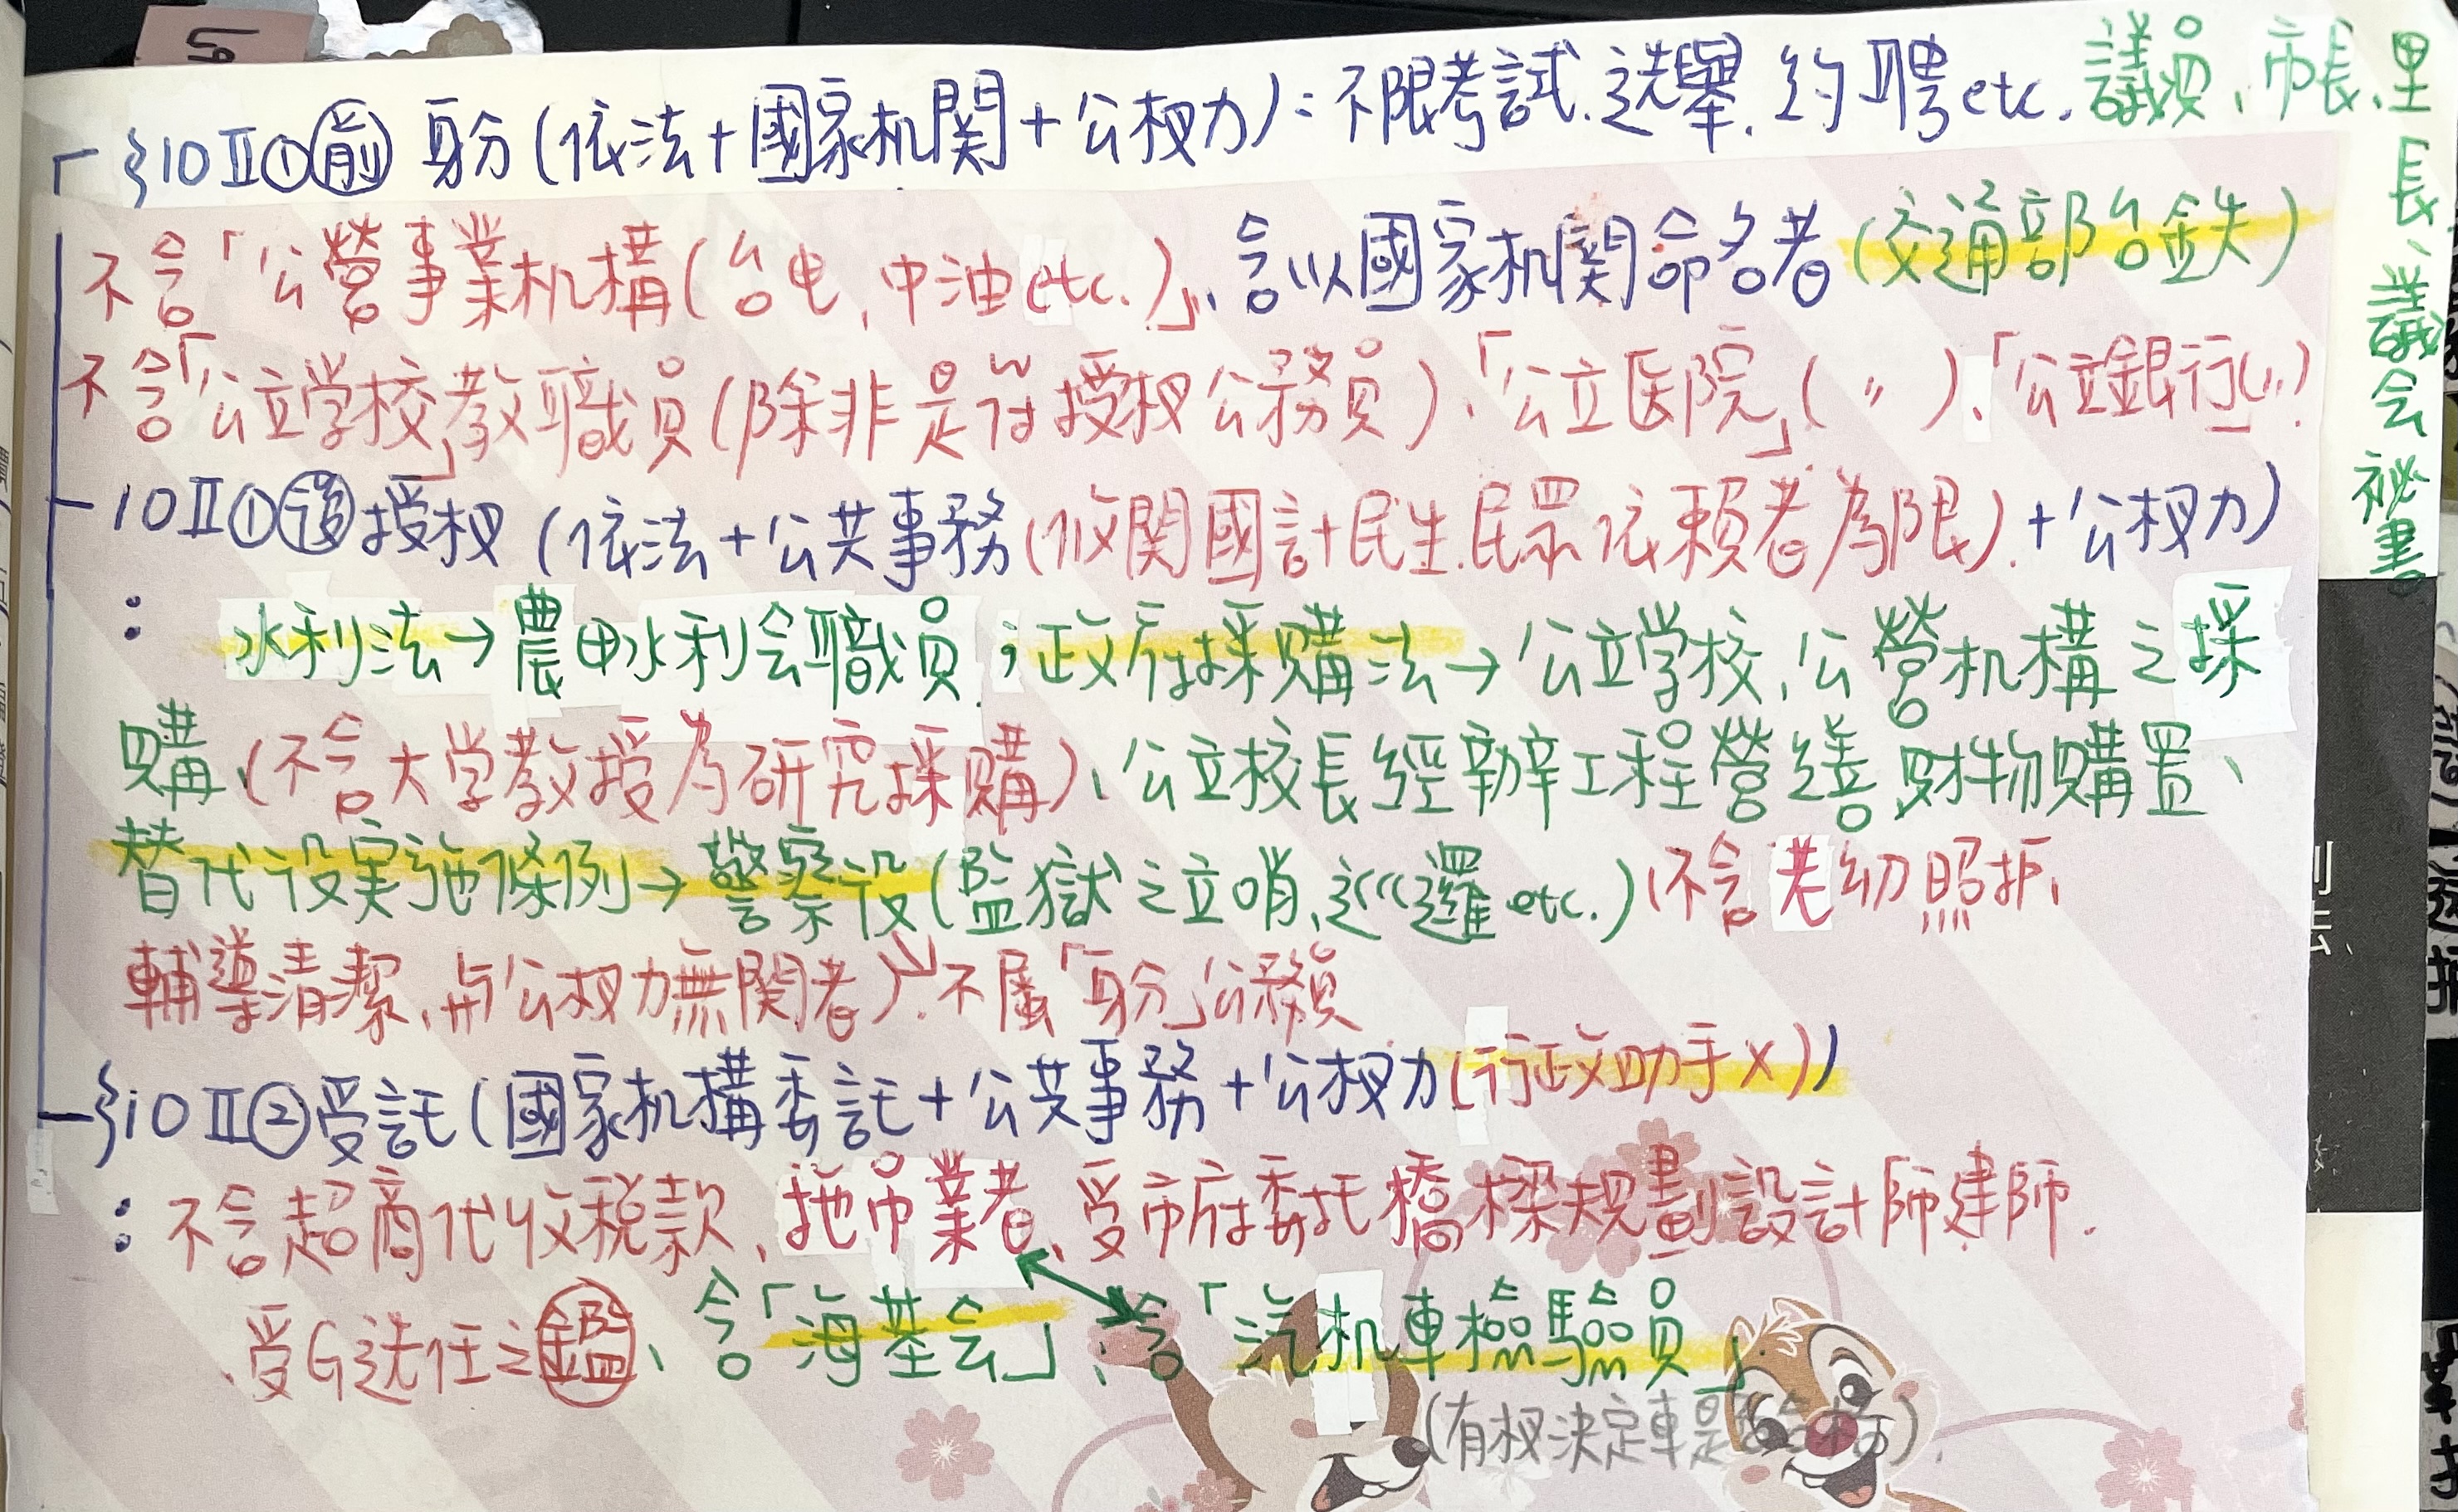 §10Ⅱ①前 身分(依法+國家机関+公权力):不限考試.选舉.約聘etc.議員、市長、里長、議会祕書。
不含「公營事業机構(台电,中油etc.)」、含以國家机関命名者(交通部台鉄)
不含「公立学校」教職員(除非是"授权公務員)、「公立医院」(〃)、「公立銀行」(〃)
10Ⅱ①後 授权(依法+公共事務(攸関國計民生.民眾依賴者為限)+公权力)
: 水利法→農田水利会職員;政府採購法→公立学校,公營机構之採
購、(不含大学教授為研究採購)、公立校長經辦工程營繕財物購置、
替代役実施條例→警察役(監獄之立哨、巡邏etc.)(不含老幼照护、
輔導清潔、與公权力無関者)不屬「身分」公務員
§10Ⅱ②受託(國家机構委託+公共事務+公权力(行政助手X))
: 不含超商代收稅款、拖吊業者、受市府委托橋樑規劃設計師建師.
受G选任之鑑、含「海基会」;含「汽机車檢驗員」
(有权決定車是否合格).